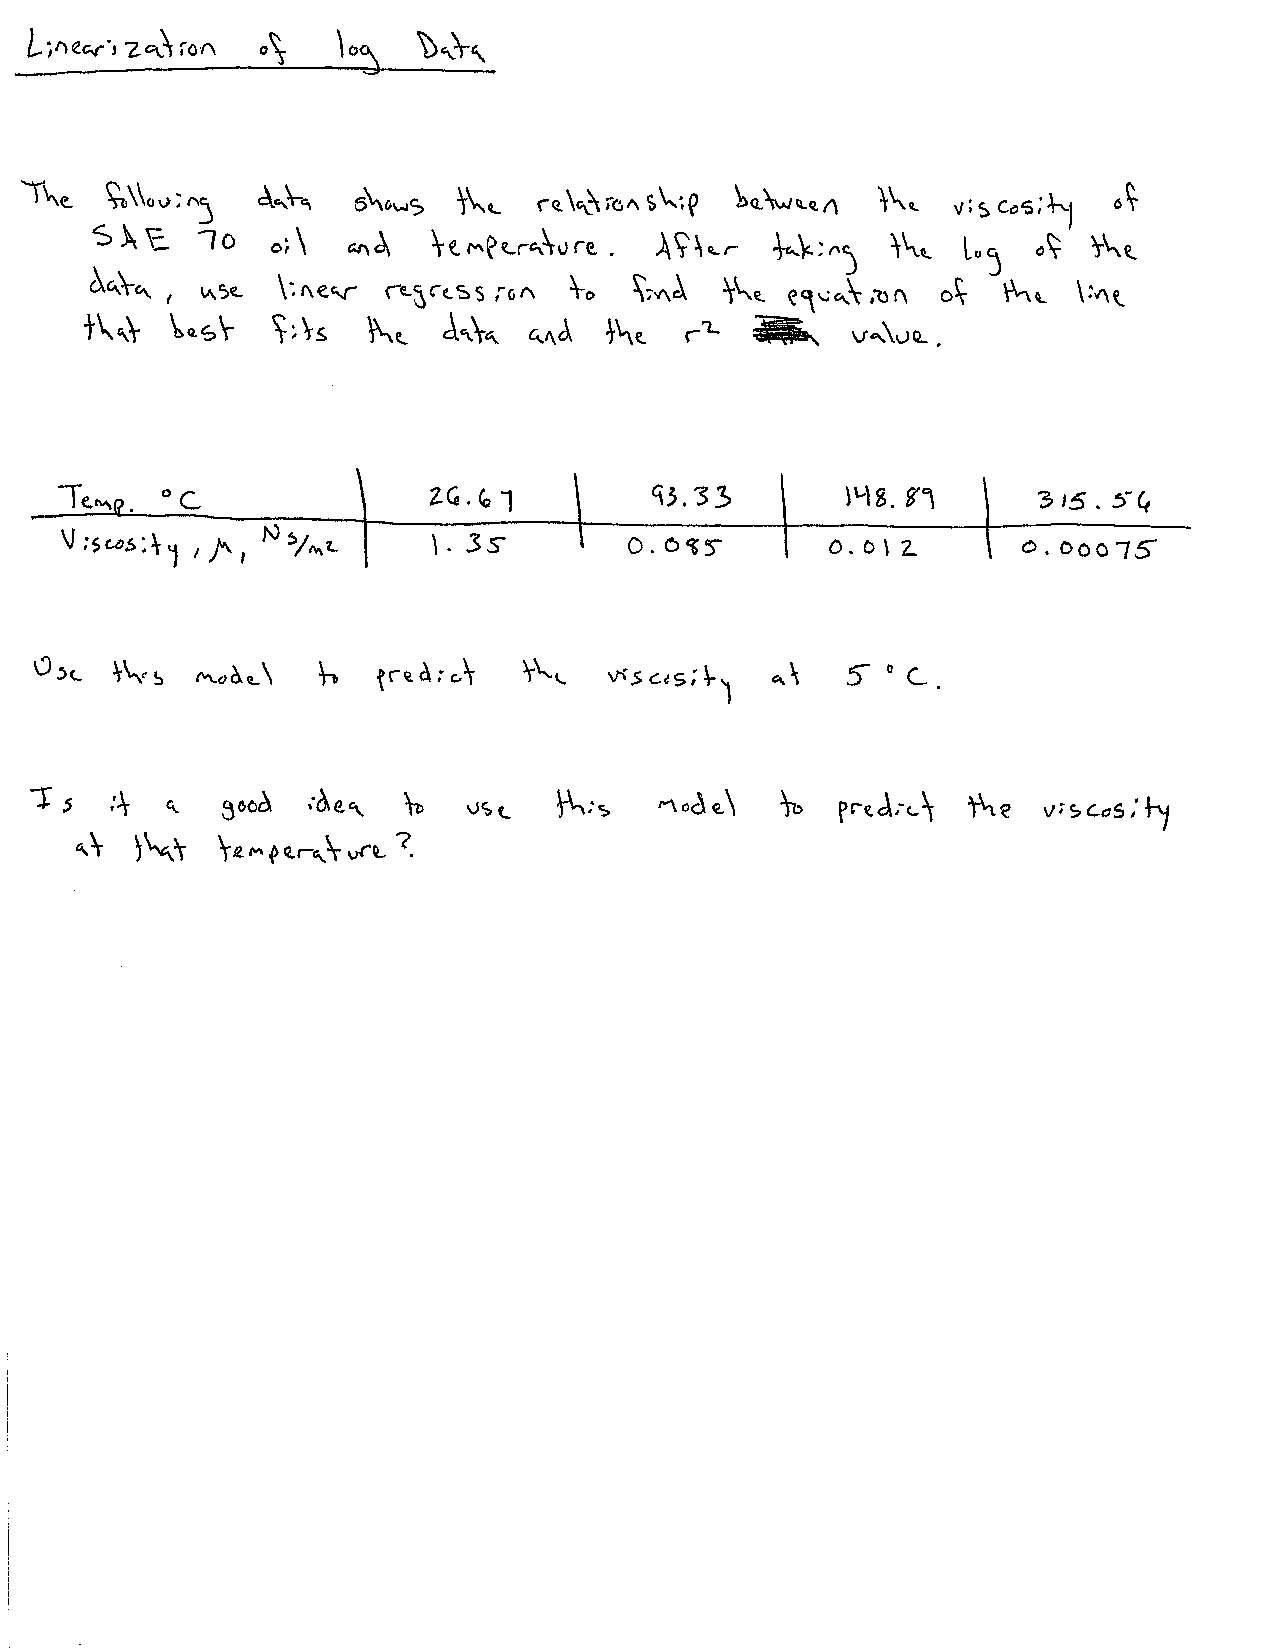 Linearization of log Data
The following data shows the relationship between the viscosity of
SAE 70 oil and temperature. After taking the log of the
data, use linear regression to find the equation of the line
that best fits the data and the r² value.
Temp. °C 26.67 93.33 148.89 315.56
Viscosity, μ, Ns/m2 1.35 0.085 0.012 0.00075
Use this model to predict the viscosity at 5 °C.
Is it a good idea to use this model to predict the viscosity
at that temperature?